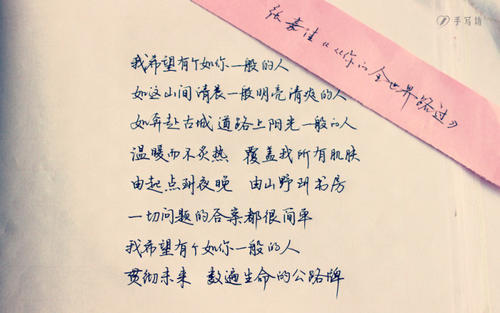 我希望有个如你一般的人
如这山间清晨一般明亮清爽的人
如奔赴古城道路上阳光一般的人
温暖而不炙热 覆盖我所有肌肤
由起点到夜晚 由山野到书房
一切问题的答案都很简单
我希望有个如你一般的人
贯彻未来 数遍生命的公路牌
张嘉佳《《你的全世界路过》
手写语